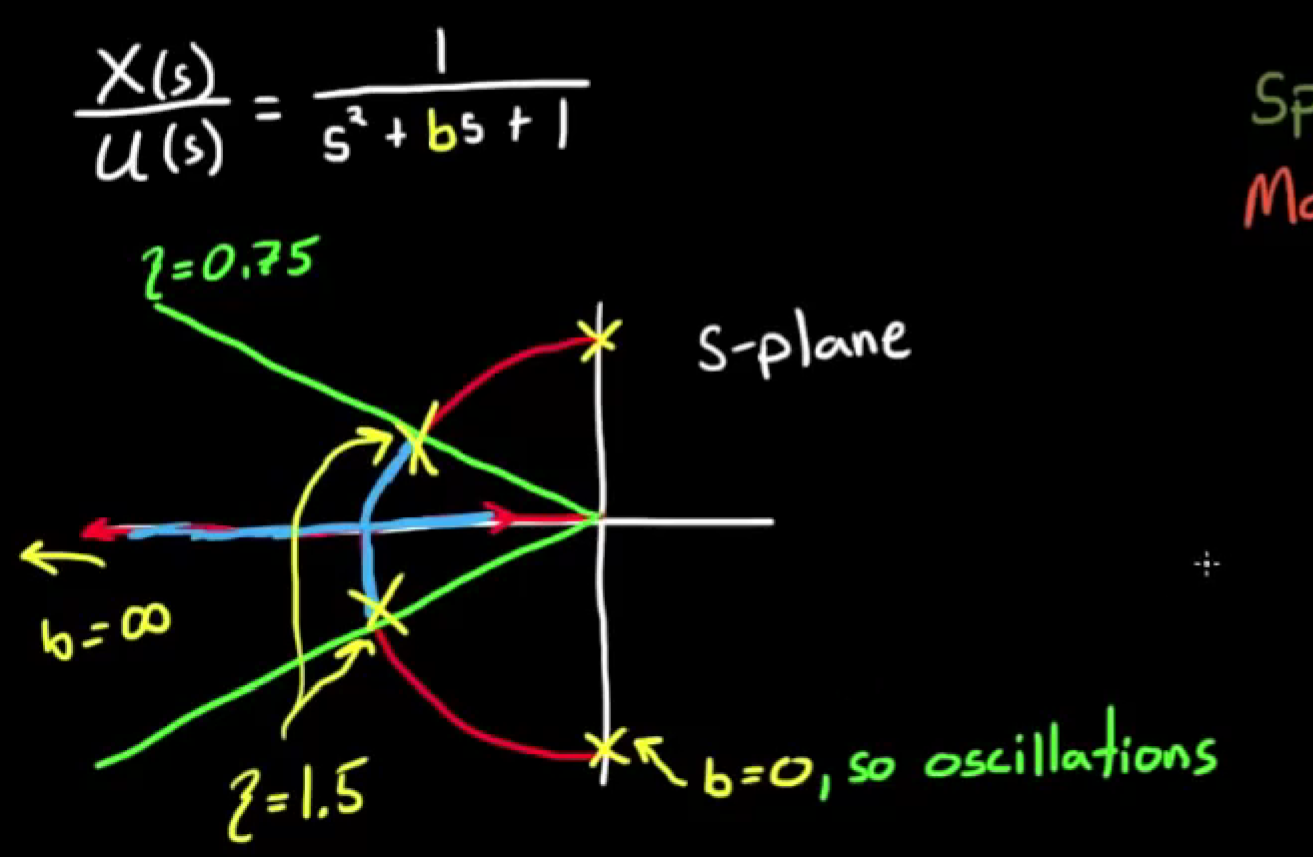 X(s)/U(s) = 1/(s² + bs + 1)
Sp
Mo
ζ=0.75
s-plane
b=∞
ζ=1.5
b=0, so oscillations